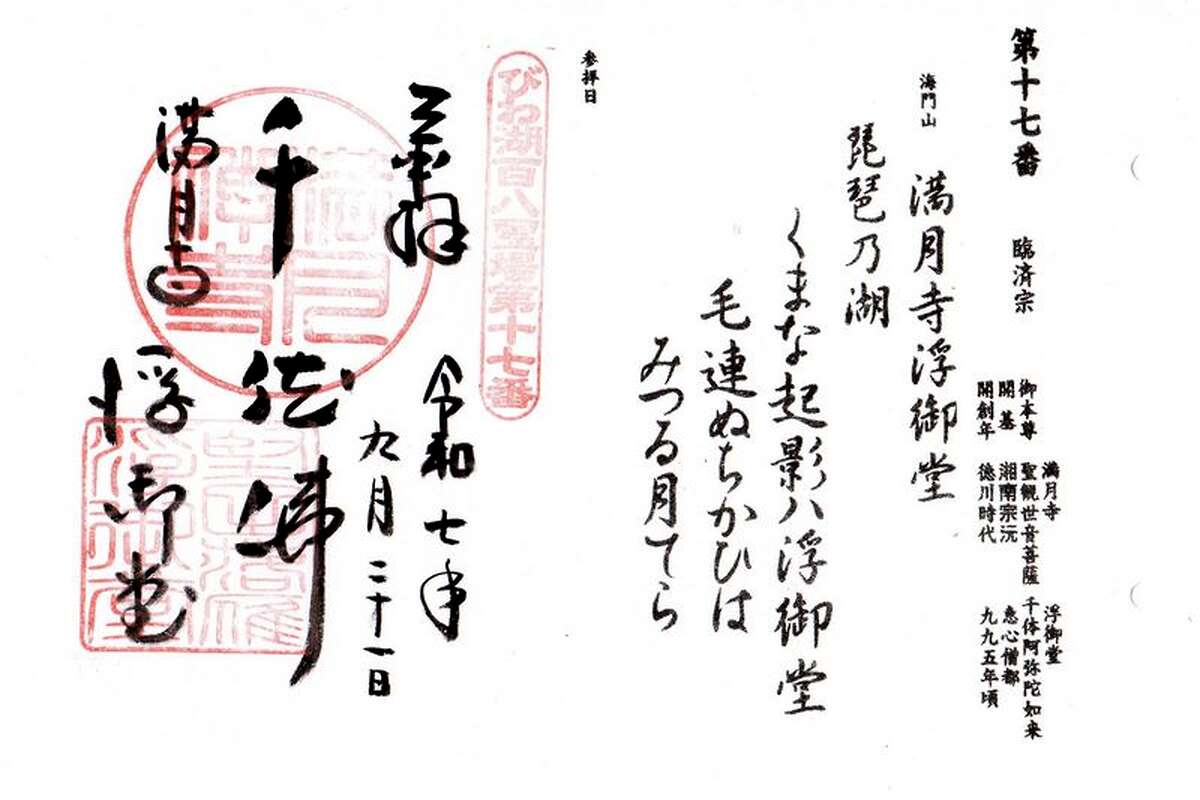 第十七番 臨済宗
満月寺 浮御堂
御本尊 聖観世音菩薩 千体阿弥陀如来
開基 湘南宗沅 恵心僧都
開創年 徳川時代 九九五年頃
海門山 満月寺浮御堂
琵琶乃湖
くまな起影八浮御堂
毛連ぬちかひは
みつる月てら
参拝日
びわ湖百八霊場第十七番
奉拝
令和七年
九月二十一日
千体佛
満月寺
浮御堂